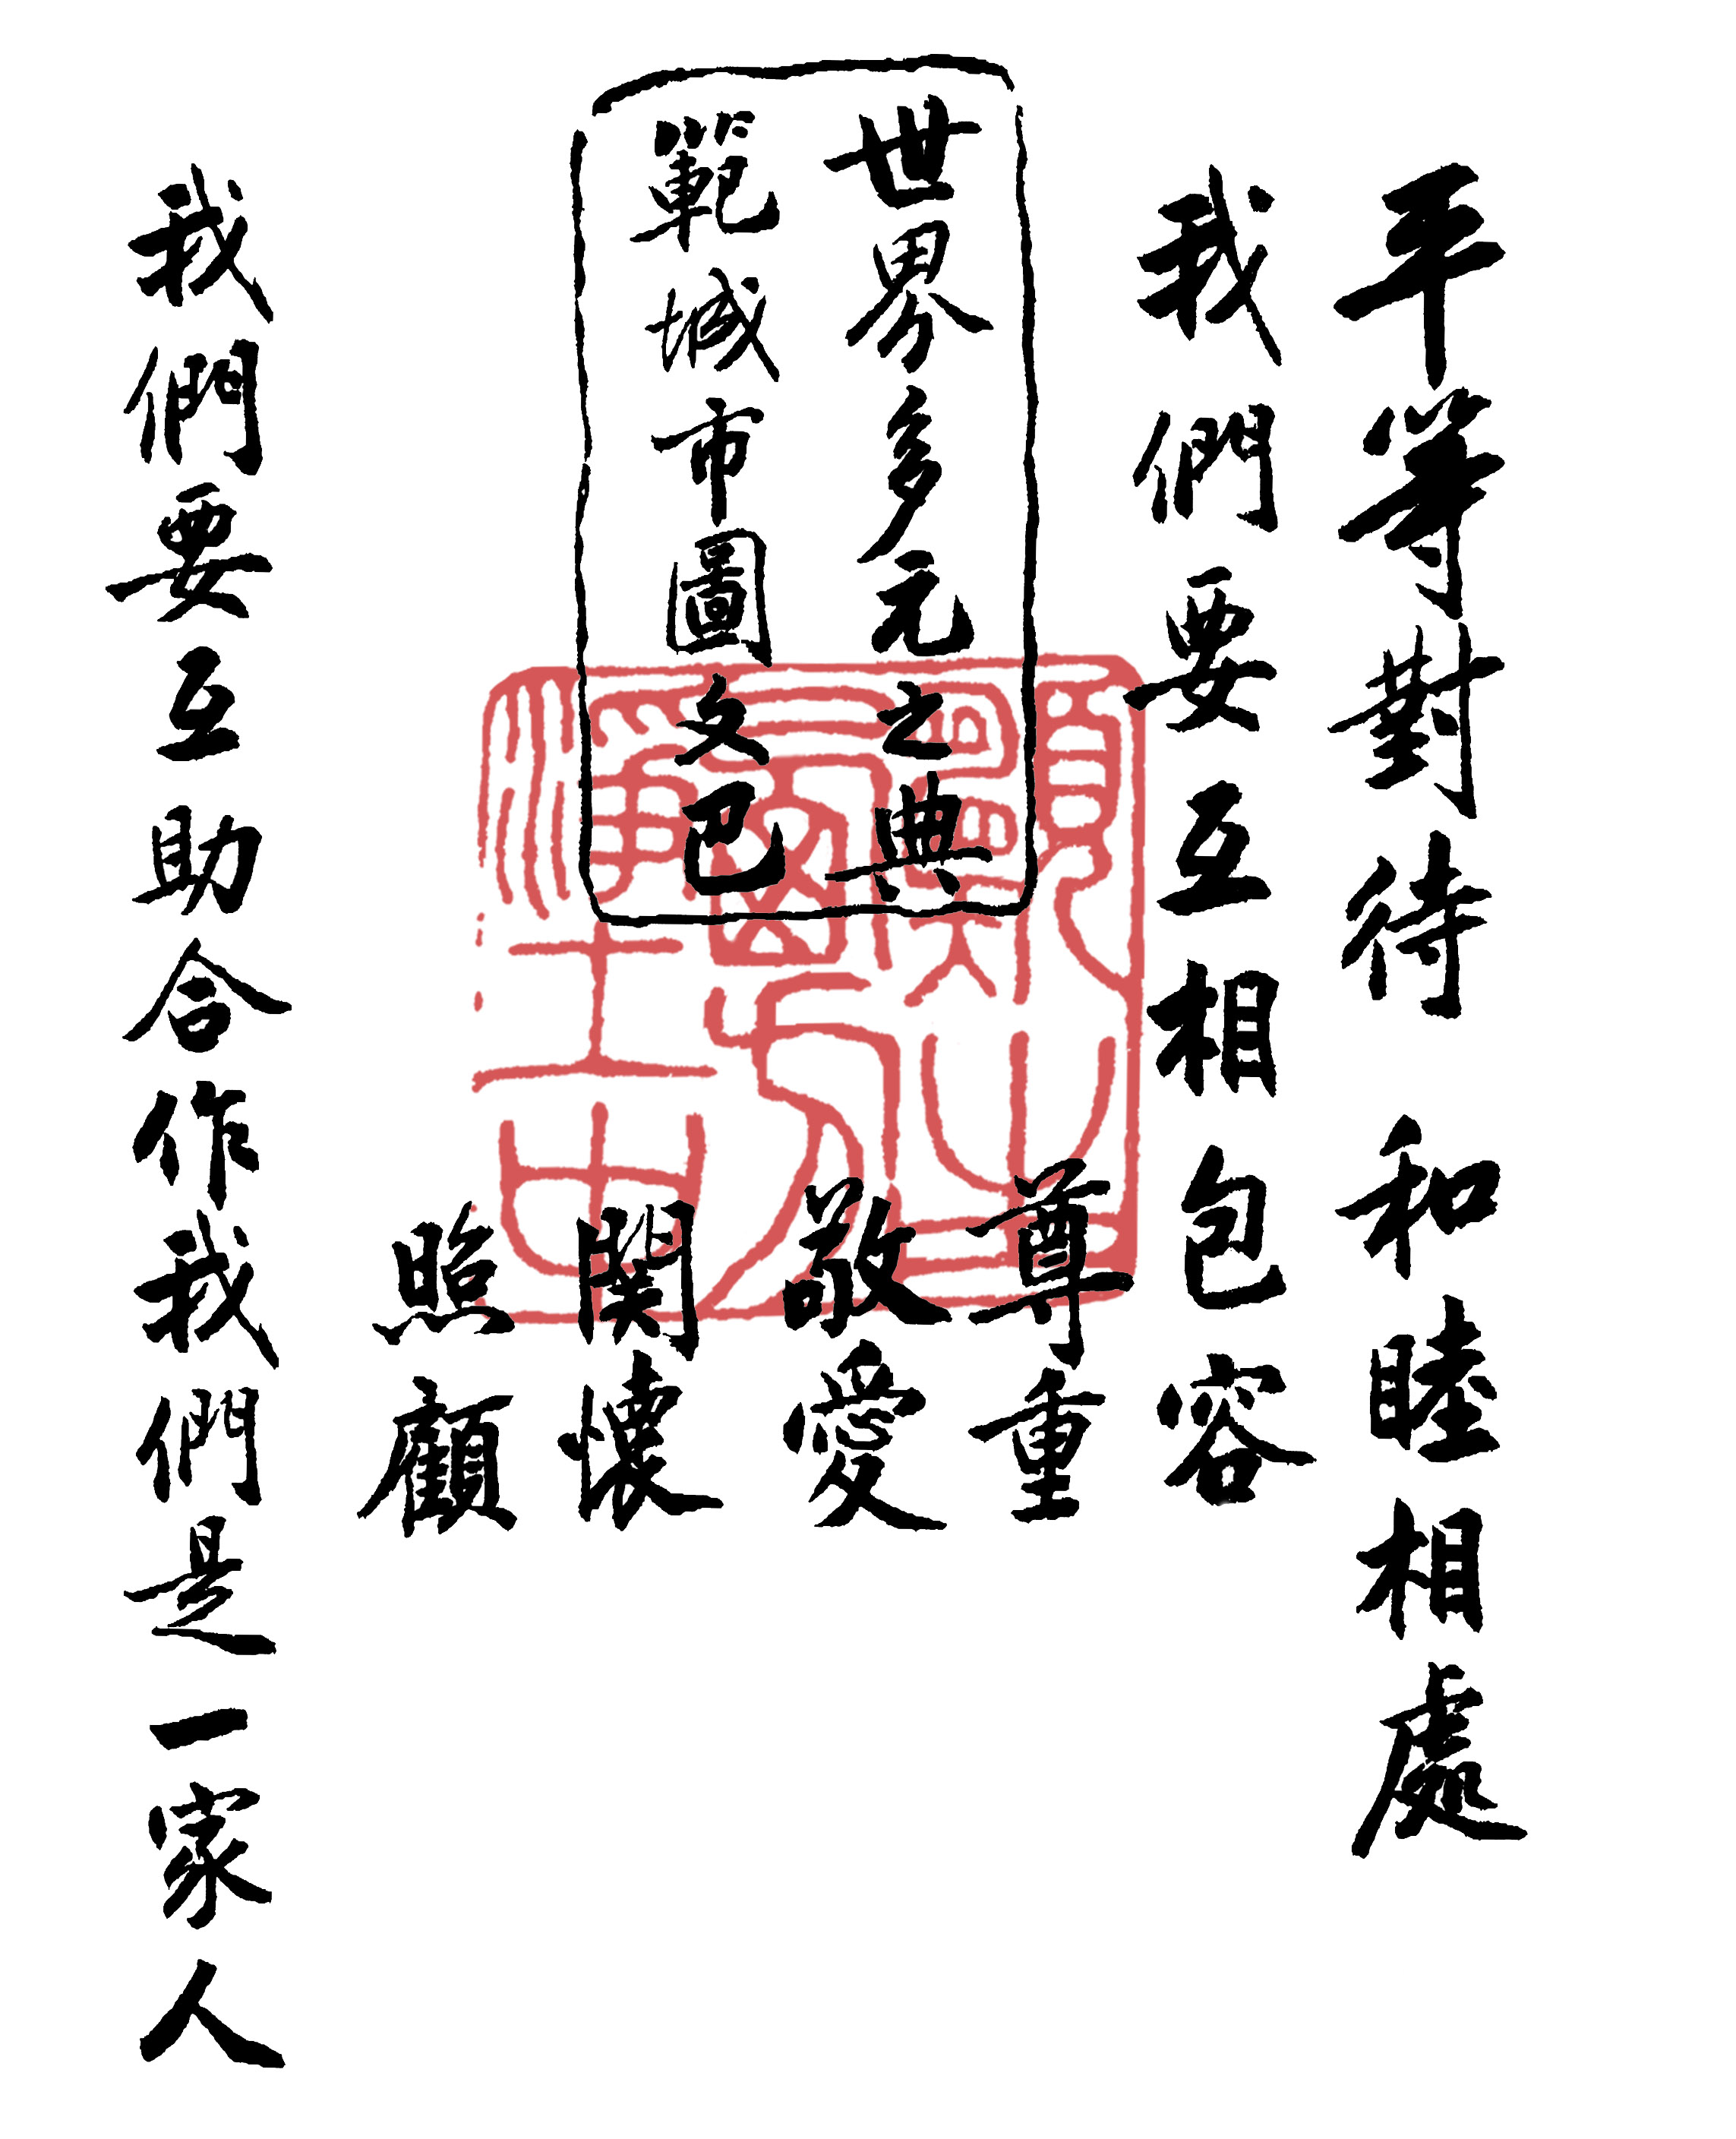 世界多元之典
範城市圖文巴
平等對待 和睦相處
我們要互相包容
尊重
敬愛
関懷
照顧
我們要互助合作我們是一家人